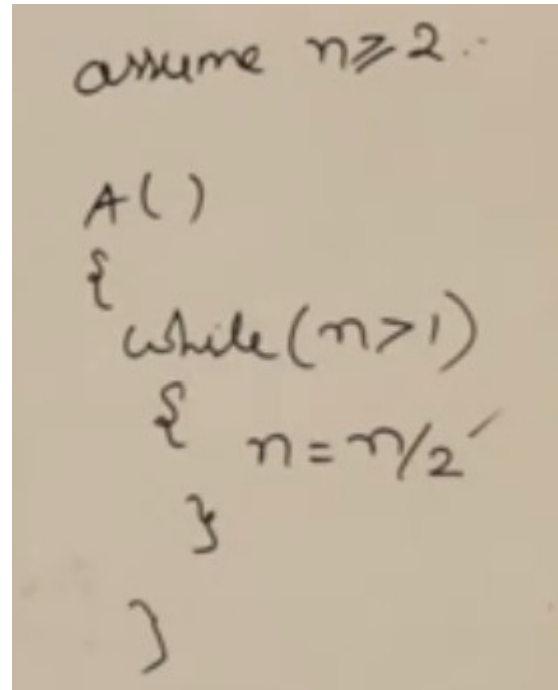 assume n≥2.
A()
{
while(n>1)
{ n=n/2
}
}